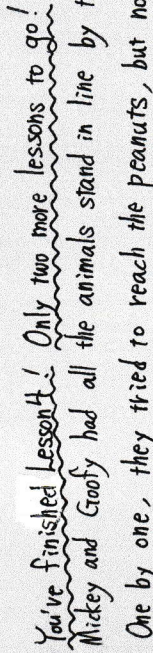 You've finished Lesson4! Only two more lessons to go!
Mickey and Goofy had all the animals stand in line by
One by one, they tried to reach the peanuts, but